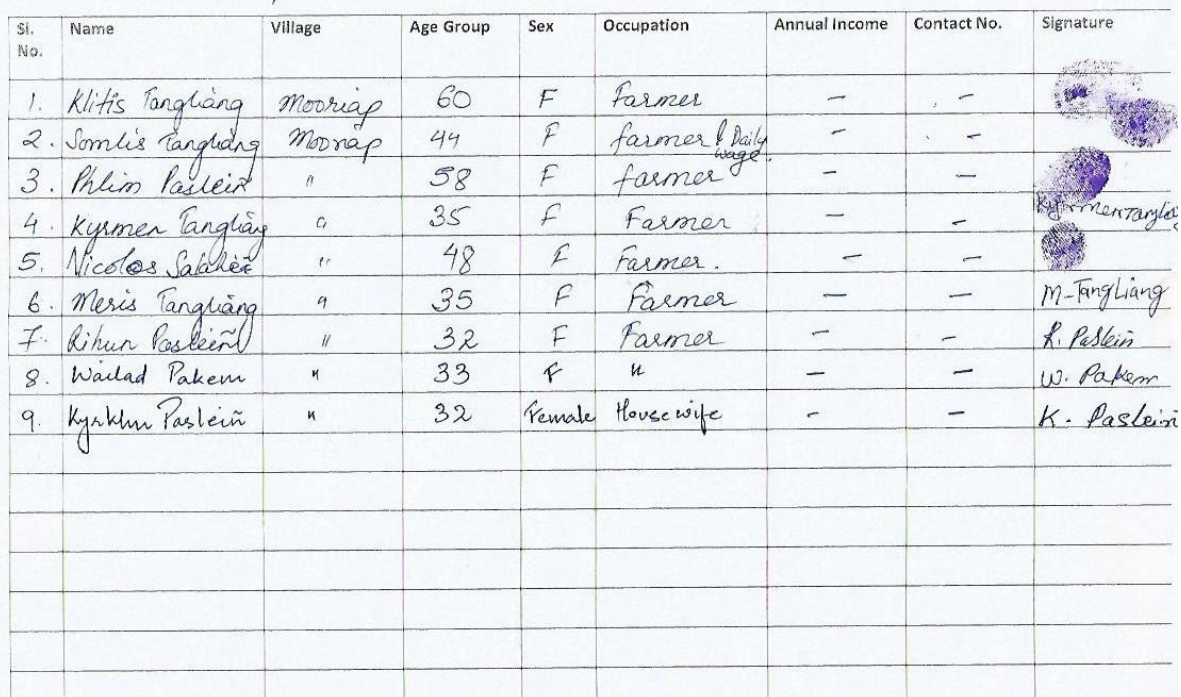 Sl. No. Name Village Age Group Sex Occupation Annual Income Contact No. Signature
1. Klitis Tangliang Mooriap 60 F Farmer - -
2. Somlis Tangliang Mooriap 44 F farmer & Daily wage. - -
3. Phlim Paslein " 58 F farmer - -
4. Kyrmen Tangliang " 35 F Farmer - - Kyrmen Tangliang
5. Nicolos " 48 F Farmer. - -
6. Meris Tangliang " 35 F Farmer - - M-Tangliang
7. Rihun Paslein " 32 F Farmer - - R. Paslein
8. Wailad Pakem " 33 F " - - W. Pakem
9. Paslein " 32 Female Housewife - - K. Paslein